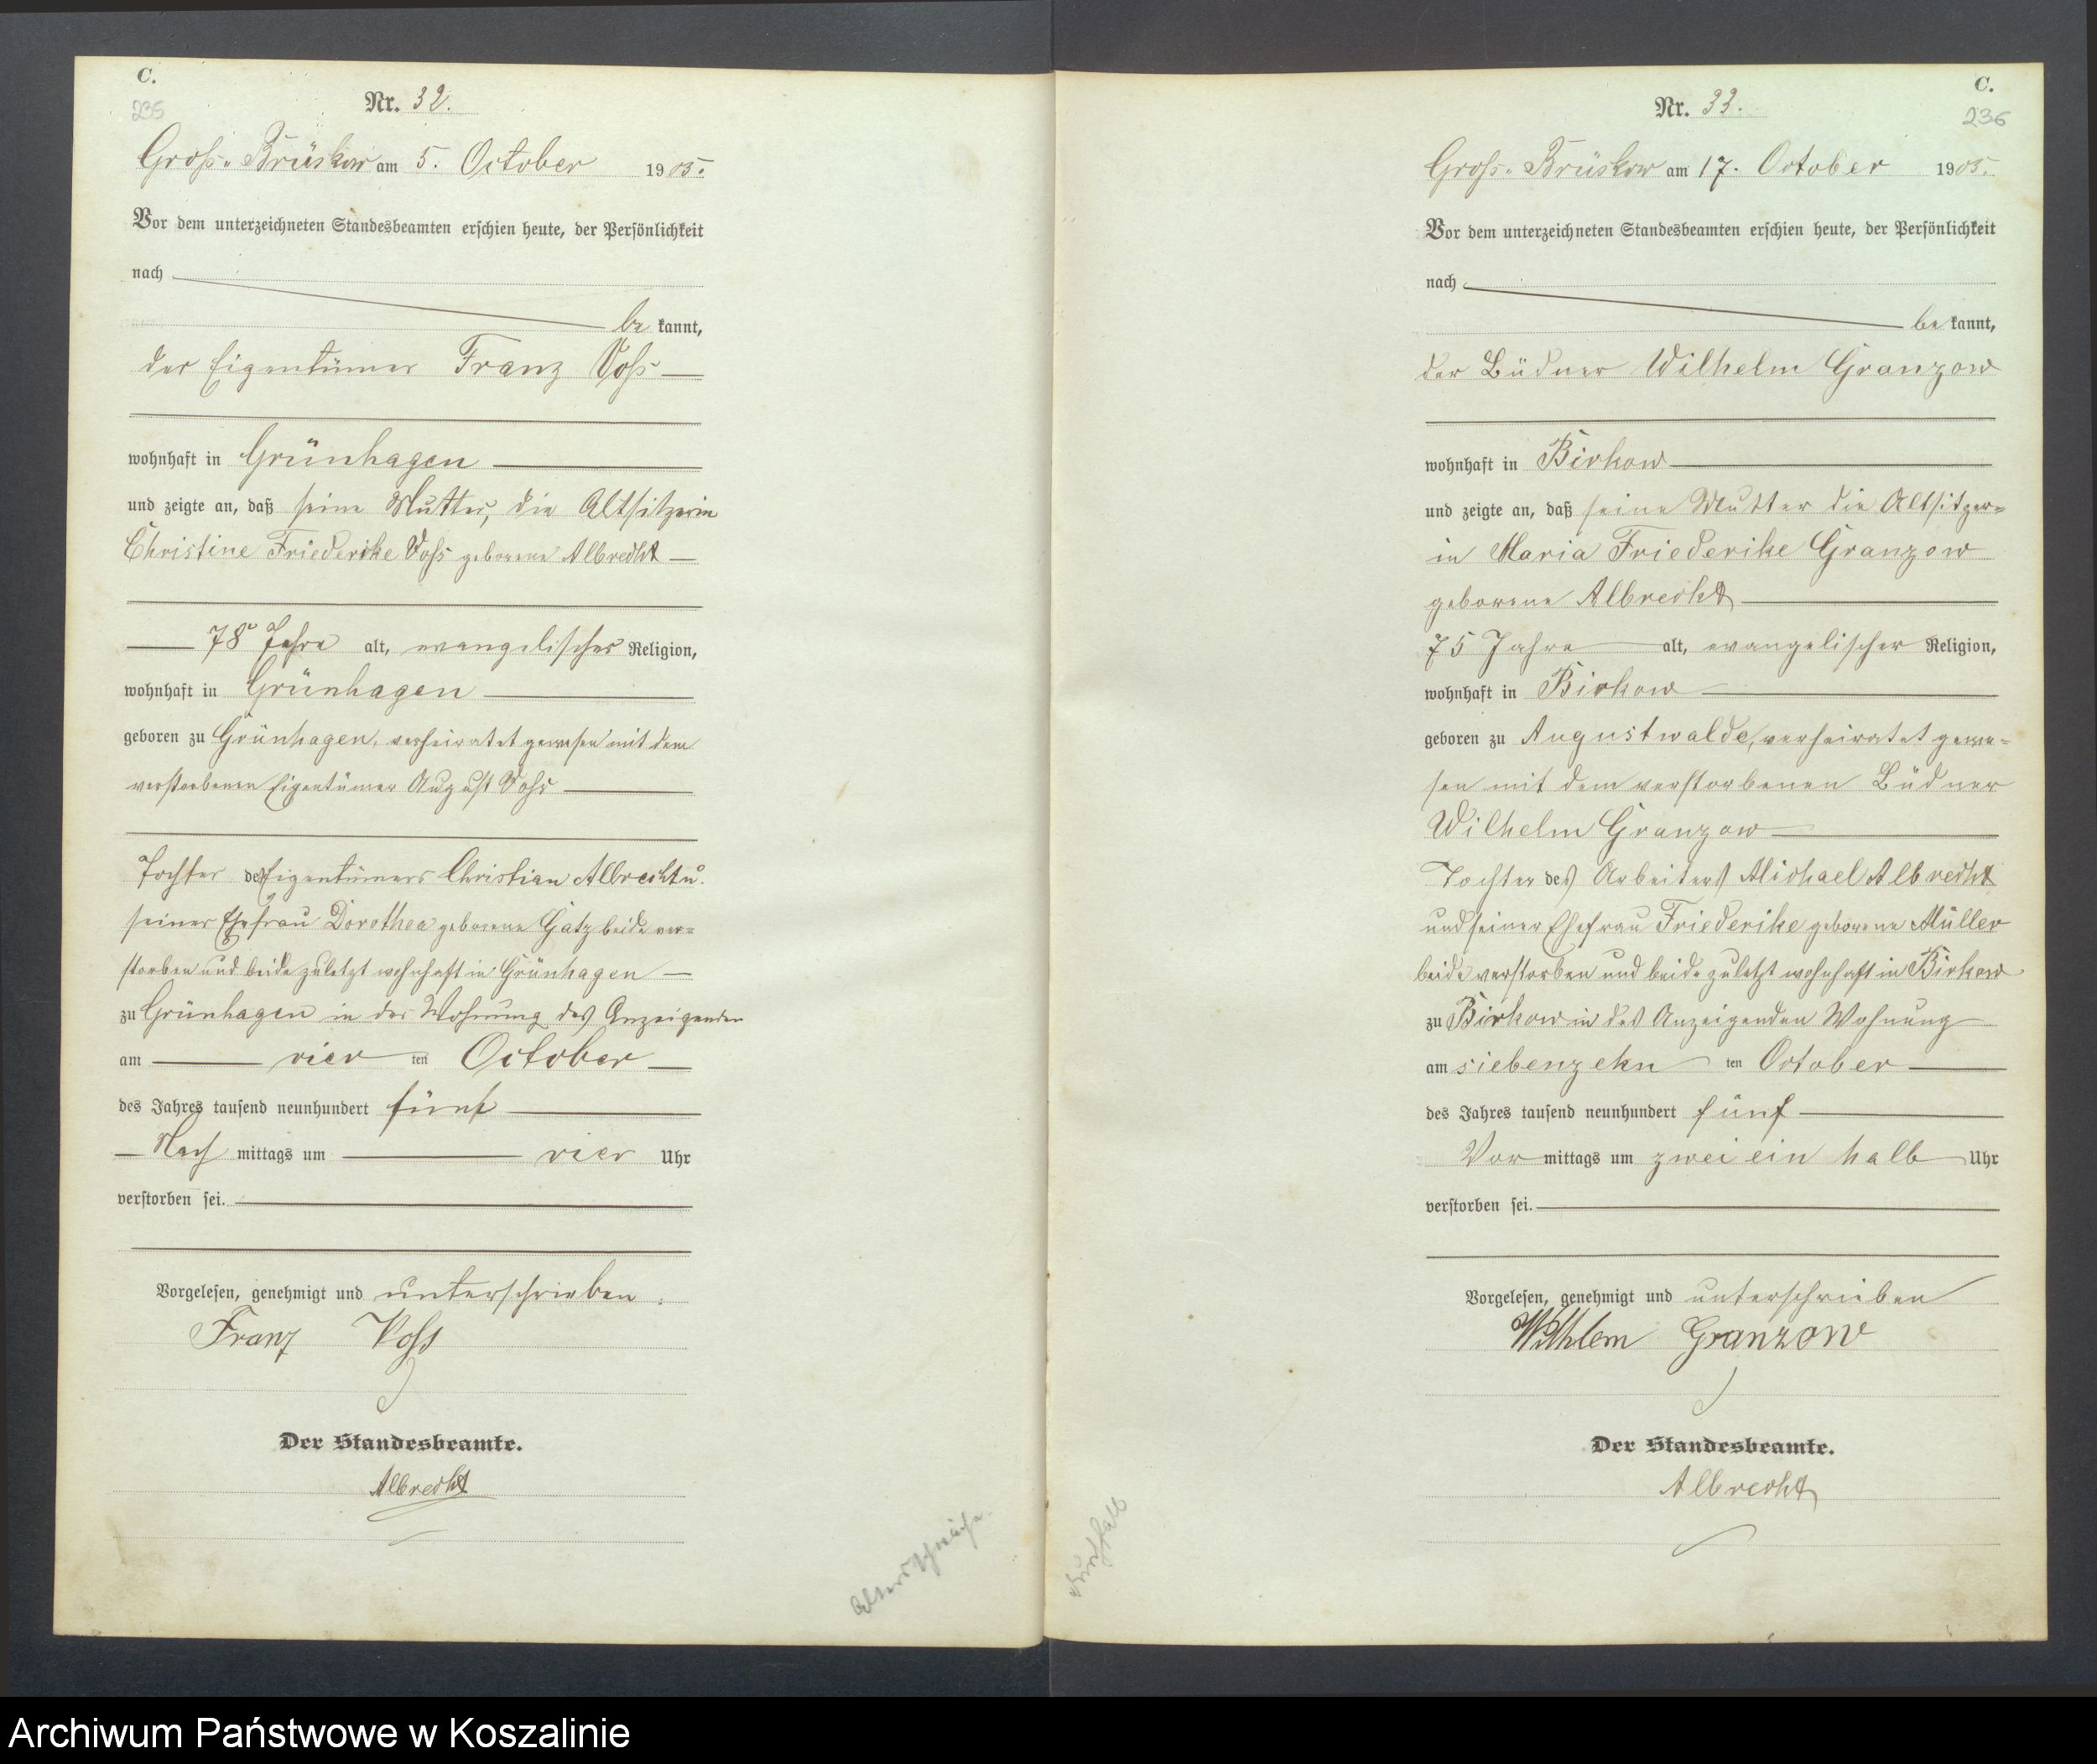 C.
235
Nr. 32.
Groß-Brüskow am 5. October 1905.
Vor dem unterzeichneten Standesbeamten erschien heute, der Persönlichkeit
nach
be kannt,
der Eigentümer Franz Voß
wohnhaft in Grünhagen
und zeigte an, daß seine Mutter, die Altsitzerin
Christine Friederike Voß geborene Albrecht
78 Jahre alt, evangelischer Religion,
wohnhaft in Grünhagen
geboren zu Grünhagen, verheiratet gewesen mit dem
verstorbenen Eigentümer August Voß
Tochter des Eigentümers Christian Albrecht u.
seiner Ehefrau Dorothea geborene Gatz beide ver=
storben und beide zuletzt wohnhaft in Grünhagen
zu Grünhagen in der Wohnung des Anzeigenden
am vier ten October
des Jahres tausend neunhundert fünf
Nach mittags um vier Uhr
verstorben sei.
Vorgelesen, genehmigt und unterschrieben.
Franz Voß
Der Standesbeamte.
Albrecht
Altersschwäche
C.
236
Nr. 33.
Groß-Brüskow am 17. October 1905.
Vor dem unterzeichneten Standesbeamten erschien heute, der Persönlichkeit
nach
be kannt,
der Büdner Wilhelm Granzow
wohnhaft in Birkow
und zeigte an, daß seine Mutter die Altsitzer=
in Maria Friederike Granzow
geborene Albrecht
75 Jahre alt, evangelischer Religion,
wohnhaft in Birkow
geboren zu Augustwalde, verheiratet gewe=
sen mit dem verstorbenen Büdner
Wilhelm Granzow
Tochter des Arbeiters Michael Albrecht
und seiner Ehefrau Friederike geborene Müller
beide verstorben und beide zuletzt wohnhaft in Birkow
zu Birkow in des Anzeigenden Wohnung
am siebenzehn ten October
des Jahres tausend neunhundert fünf
Vor mittags um zwei ein halb Uhr
verstorben sei.
Vorgelesen, genehmigt und unterschrieben
Wilhlem Granzow
Der Standesbeamte.
Albrecht
Durchfall
Archiwum Państwowe w Koszalinie